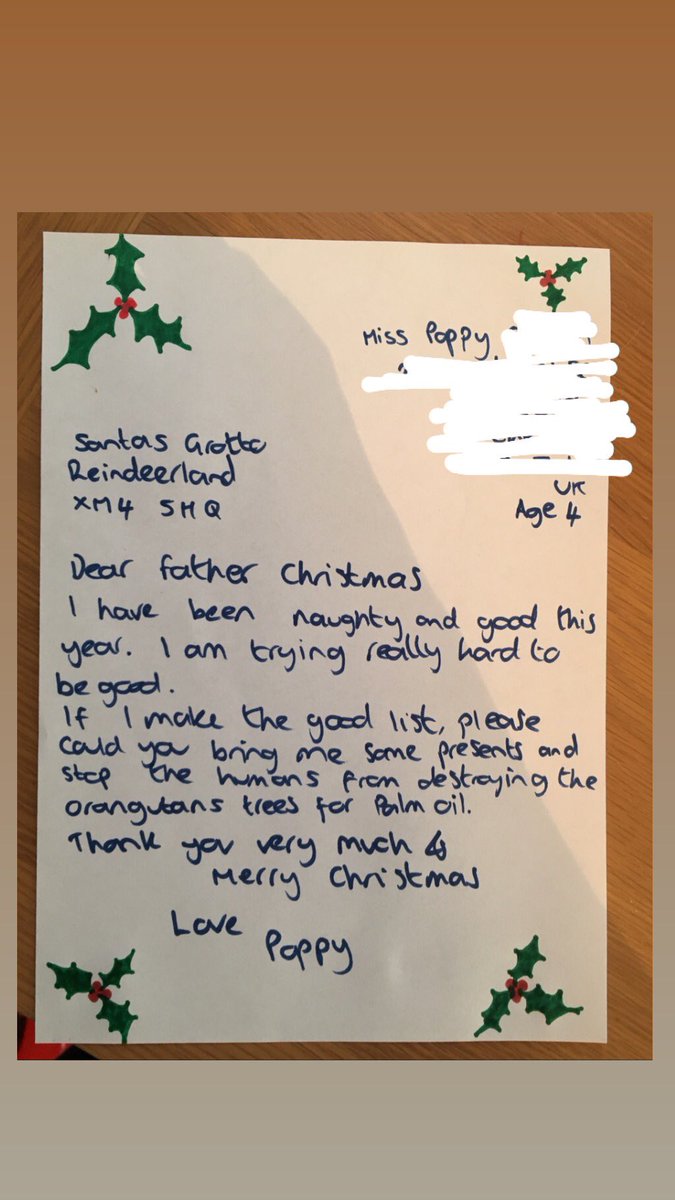 Miss Poppy,
UK
Age 4
Santas Grotto
Reindeerland
XM4 5HQ
Dear Father Christmas
I have been naughty and good this
year. I am trying really hard to
be good.
If I make the good list, please
could you bring me some presents and
stop the humans from destroying the
orangutans trees for Palm oil.
Thank you very much &
Merry Christmas
Love
Poppy